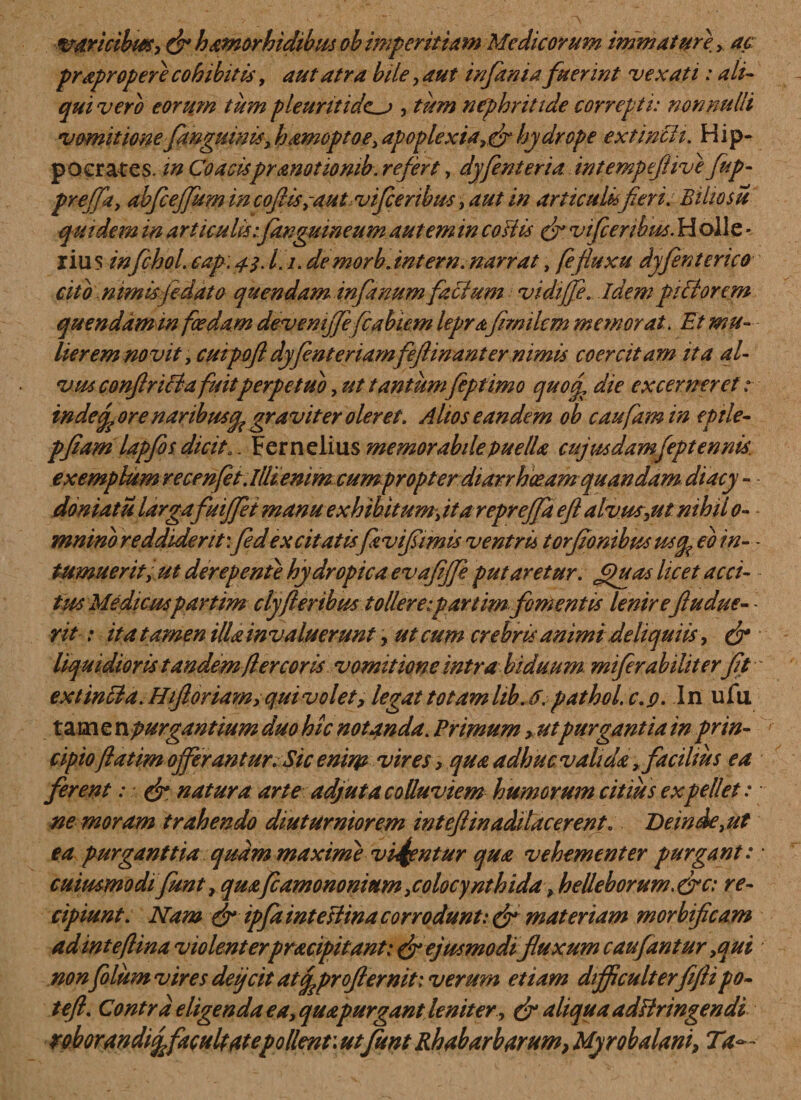 varicibus, & hæmorhidibus ob imperitiam Medicorum immature, ac
præpropere cohibitis, aut atra bile, aut insania fuerint vexati: ali-
qui vero eorum tùm pleuritide, tùm nephritide correpti: nonnulli
vomitione sanguinis, hæmoptoe, apoplexia, & hydrope extincti. Hip-
pocrates. in Coacis prænotionib. refert, dysenteria intempestivè sup-
pressa, abscessum in costis, aut visceribus, aut in articulis fieri. Biliosũ
quidem in articulis: sanguineum autem in costis & visceribus. Holle-
rius in schol. cap. 43. l. 1. de morb. intern. narrat, se fluxu dysenterico
citò nimis sedato quendam insanum factum vidisse. Idem pictorem
quendam in fœdam devenisse scabiem lepræ similem memorat. Et mu-
lierem novit, cui post dysenteriam festinanter nimis coercitam ita al-
vus constricta fuit perpetuò, ut tantùm septimo quoq; die excerneret:
indeq; ore naribusq; graviter oleret. Alios eandem ob causam in epile-
psiam lapsos dicit. Fernelius memorabile puellæ cujusdam septennis
exemplum recenset. Illi enim cum propter diarrhœam quandam diacy-
doniatũ larga fuisset manu exhibitum, ita repressa est alvus, ut nihil o-
mnino reddiderit: sed excitatis sævissimis ventris torsionibus usq; eò in-
tumuerit, ut derepentè hydropica evasisse putaretur. Quas licet acci-
tus Medicus partim clysteribus tollere: partim fomentis lenire studue-
rit: ita tamen illæ invaluerunt, ut cum crebris animi deliquiis, &
liquidioris tandem stercoris vomitione intra biduum miserabiliter sit
extincta. Historiam, qui volet, legat totam lib. 6. pathol. c. 9. In usu
tamen purgantium duo hîc notanda. Primum, ut purgantia in prin-
cipio statim offerantur. Sic enim vires, quæ adhuc validæ, facilius ea
ferent: & natura arte adjuta colluviem humorum citius expellet:
ne moram trahendo diuturniorem intestina dilacerent. Deinde, ut
ea purganttia quàm maximè vitentur quæ vehementer purgant:
cuiusmodi sunt, quæ scamononium, colocynthida, helleborum. &c: re-
cipiunt. Nam & ipsa intestina corrodunt: & materiam morbificam
ad intestina violenter præcipitant: & ejusmodi fluxum causantur, qui
non solùm vires dejicit atq; prosternit: verum etiam difficulter sisti po-
test. Contrà eligenda ea, quæ purgant leniter, & aliqua adstringendi
roborandiq; facultate pollent: ut sunt Rhabarbarum, Myrobalani, Ta-